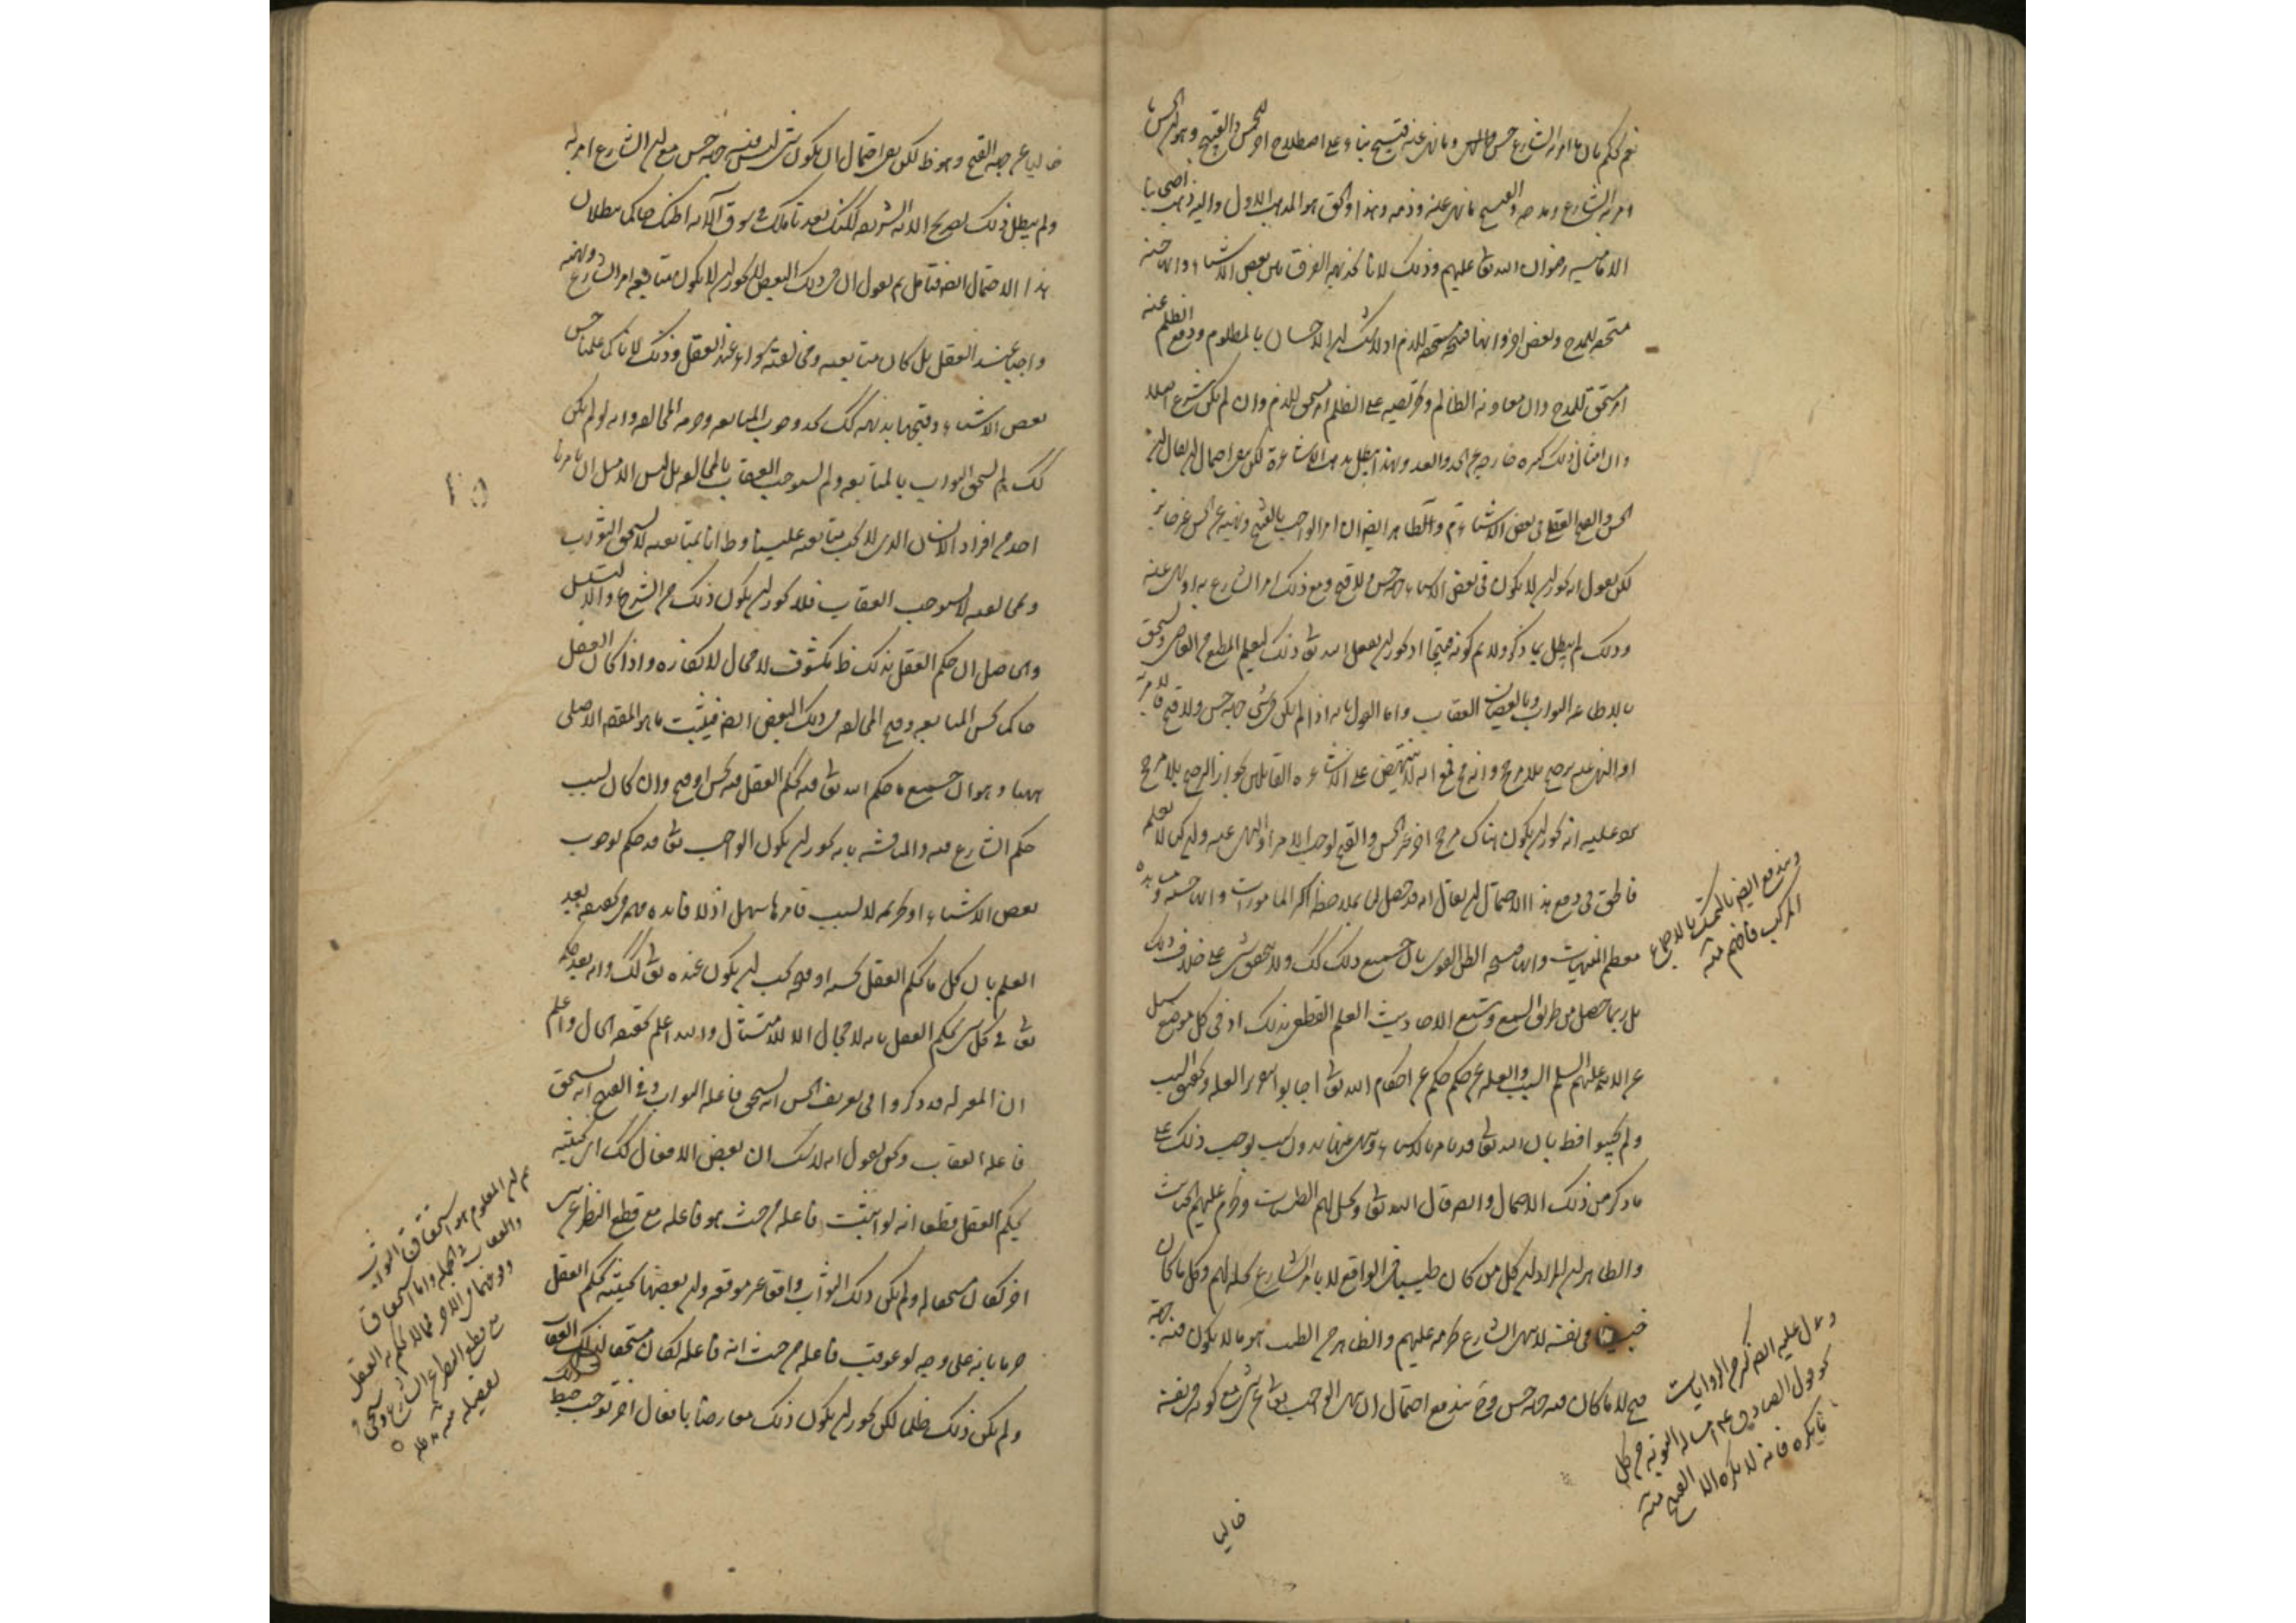 نعم نحكم بان ما امر به الشارع حسن وما نهى عنه قبيح بناء على اصطلاح اخر للحسن والقبيح وهو ان الحسن ما
امر به الشارع ومدحه والقبيح ما نهى عنه وذمه وهذا والحق هو المذهب الاول واليه ذهب اصحابنا
الامامية رضوان الله تعالى عليهم وذلك لانا نجد بديهة الفرق بين بعض الاشياء وانها حسنة
مستحقة للمدح وبعض اخر وانها قبيحة مستحقة للذم اذ لا شك ان الاحسان بالمظلوم ودفع الظلم عنه
امر مستحق للمدح وان معاونة الظالم وتحريصه على الظلم امر مستحق للذم وان لم يكن شرع اصلا
وان امثال ذلك كثيرة خارجة عن الحد والعد وبهذا يبطل مذهب الاشاعرة لكن بقى احتمال ان يقال ان
الحسن والقبح العقلي في بعض الاشياء تم والظاهر ايضا ان امر الواجب بالقبيح ونهيه عن الحسن غير جايز
لكن نقول انه يجوز ان لا يكون في بعض الاشياء جهة حسن ولا قبح ومع ذلك امر الشارع به او نهى عنه
وذلك لم يبطل بما ذكر ولا يتم كونه قبيحا اذ يجوز ان يفعل الله تعالى ذلك ليعلم المطيع من العاصي ويستحق
بالاطاعة الثواب وبالعصيان العقاب واما القول بانه اذا لم يكن في شيء جهة حسن ولا قبح فالامر به
او النهي عنه ترجيح بلا مرجح وانه مح فمع انه لا ينتهض على الاشاعرة القائلين بجواز الترجيح بلا مرجح
يرد عليه انه يجوز ان يكون هناك مرجح اخر غير الحسن والقبح يوجب الامر او النهي عنه وان كنا لا نعلمه
فالحق في دفع هذا الاحتمال ان يقال انه قد حصل لنا بملاحظة اكثر المامورات وانها حسنة ومشاهدة
معظم المنهيات وانها قبيحة الظن القوي بان جميع ذلك كك ولا يتحقق شيء على خلاف ذلك
بل ربما حصل من طريق السمع وتتبع الاحاديث العلم القطعي بذلك اذ في كل موضع سئل
عن الائمة عليهم السلم السبب والعلة عن حكم حكم من احكام الله تعالى اجابوا بتقرير العلة وتحقيق السبب
ولم يجيبوا قط بان الله تعالى قد يامر بالاشياء وينهى عنها بدون سبب يوجب ذلك على
ما ذكر من ذلك الاحتمال وايضا قال الله تعالى ويحل لهم الطيبات ويحرم عليهم الخبائث
والظاهر ان المراد ان كل من كان طيبا في الواقع لا بامر الشارع يحله لهم وكل ما كان
خبيثا في نفسه لا بنهي الشارع يحرمه عليهم والظاهر من الطيب هو ما لا يكون فيه جهة
قبح لا ما كان فيه جهة حسن وح يندفع احتمال ان ينهى الواجب تعالى عن شيء مع كونه في نفسه
خاليا
ويندفع ايضا بالتمسك بالاجماع
المركب فافهم منه
ويدل عليه ايضا كثير من الروايات
كقول الصادق عم
ما يكره فانه لا يكره الا القبيح منه
خاليا عن جهة القبح وهو ظ لكن بقى احتمال ان يكون شيء ليس فيه جهة حسن مع ان الشارع امر به
ولم يبطل ذلك بصريح الاية الشريفة لكنك بعد تاملك في سوق الآية اظنك حاكما ببطلان
هذا الاحتمال ايضا فتامل ثم نقول ان في ذلك البعض المذكور ان لا يكون متابعة امر الشارع ونهيه
واجبا عند العقل بل كان متابعته ومخالفته سواء عند العقل وذلك لانا كما علمنا حسن
بعض الاشياء وقبحها بديهة كك نجد وجوب المتابعة وحرمة المخالفة وانه لو لم يكن
كك لم يستحق الثواب بالمتابعة ولم يستوجب العقاب بالمخالفة بل ليس الا مثل ان يامرنا
احد من افراد الانسان الذي لا يجب متابعته علينا وظ انا بمتابعته لا نستحق الثواب
وبمخالفته لا نستوجب العقاب فلا يجوز ان يكون ذلك من الشرع والا لتسلسل
والحاصل ان حكم العقل بذلك ظ مكشوف لا مجال لانكاره واذا كان العقل
حاكما بحسن المتابعة وقبح المخالفة في ذلك البعض ايضا فيثبت ما هو المقصد الاصلي
ههنا وهو ان جميع ما حكم الله تعالى فيه يحكم العقل فيه بحسن او قبح وان كان بسبب
حكم الشارع فيه والمناقشة بانه يجوز ان يكون الواجب تعالى قد حكم بوجوب
بعض الاشياء او تحريمه لا لسبب فامرها سهل اذ لا فائدة مهمة في تحقيقه بعد
العلم بان كل ما يحكم العقل بحسنه او قبحه يجب ان يكون عنده تعالى كك وانه بعد حكمه
تعالى في كل شيء يحكم العقل بانه لا مجال الا للامتثال والله اعلم بحقيقة الحال واعلم
ان المعتزلة قد ذكروا في تعريف الحسن انه يستحق فاعله الثواب وفي القبيح انه يستحق
فاعله العقاب ونحن نقول انه لا شك ان بعض الافعال كك اي بحيث
يحكم العقل قطعا انه لو اثيب فاعله من حيث هو فاعله مع قطع النظر عن شيء
اخر لكان مستحقا له ولم يكن ذلك الثواب واقعا غير موقعه وان بعضها بحيث يحكم العقل
جزما بانه على وجه لو عوقب فاعله من حيث انه فاعله لكان مستحقا لذلك العقاب
ولم يكن ذلك ظلما لكن يجوز ان يكون ذلك معارضا بافعال اخر توجب حبط
٢٥
ثم ان المعلوم هو استحقاق الثواب
والعقاب في الجملة واما استحقاق